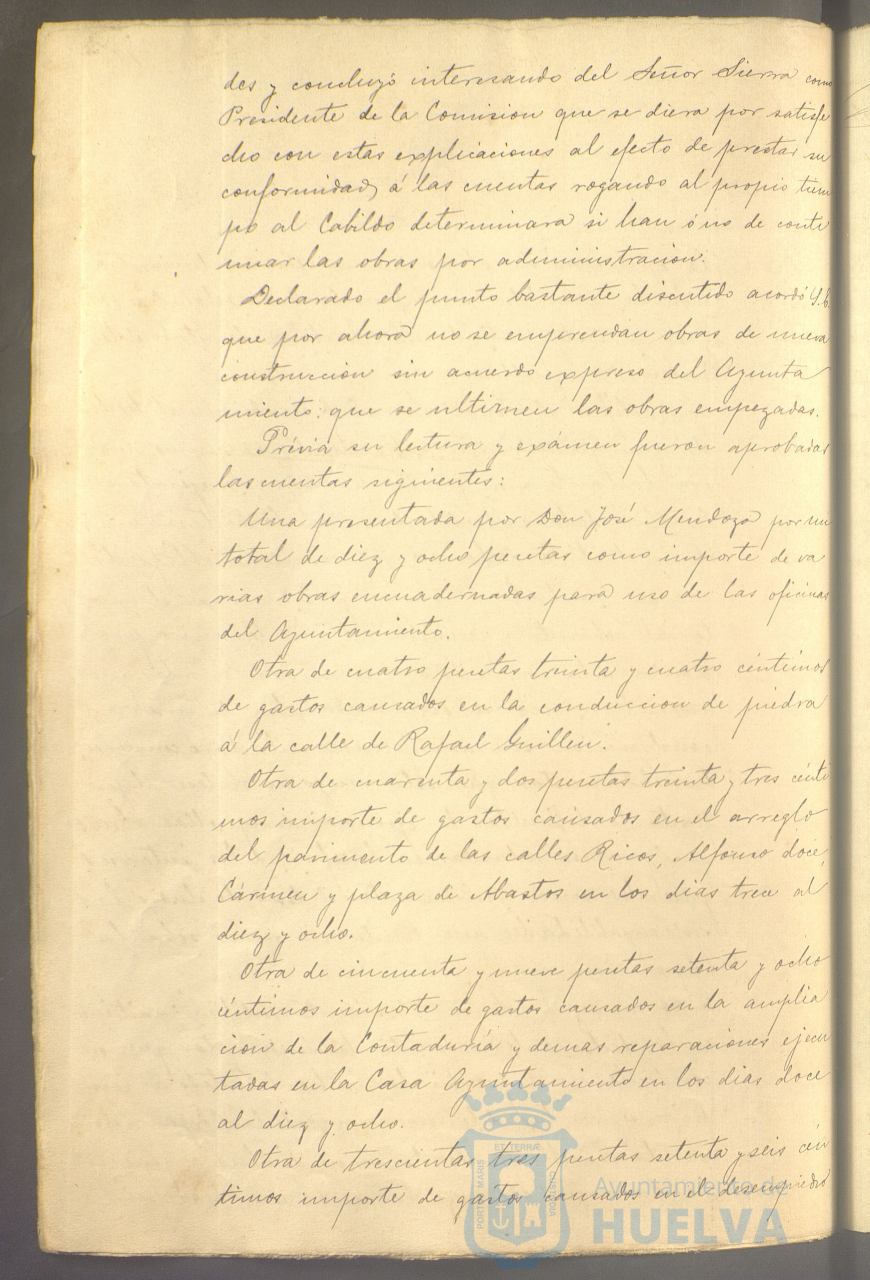 des y concluyó interesando del Señor Sierra como
Presidente de la Comision que se diera por satisfe
cho con estas explicaciones al efecto de prestar su
conformidad á las cuentas rogando al propio tiem
po al Cabildo determinara si han ó no de conti
nuar las obras por administracion.
Declarado el punto bastante discutido acordó S.E.
que por ahora no se emprendan obras de nueva
construccion sin acuerdo expreso del Ayunta
miento: que se ultimen las obras empezadas.
Prévia su lectura y exámen fueron aprobadas
las cuentas siguientes:
Una presentada por Don José Mendoza por un
total de diez y ocho pesetas como importe de va
rias obras encuadernadas para uso de las oficinas
del Ayuntamiento.
Otra de cuatro pesetas treinta y cuatro céntimos
de gastos causados en la conduccion de piedra
á la calle de Rafael Guillen.
Otra de cuarenta y dos pesetas treinta y tres cénti
mos importe de gastos causados en el arreglo
del pavimento de las calles Ricos, Alfonso doce,
Cármen y plaza de Abastos en los dias trece al
diez y ocho.
Otra de cincuenta y nueve pesetas setenta y ocho
céntimos importe de gastos causados en la amplia
cion de la Contaduría y demas reparaciones ejecu
tadas en la Casa Ayuntamiento en los dias doce
al diez y ocho.
Otra de trescientas tres pesetas setenta y seis cén
timos importe de gastos causados en el desempiedro
PORTUS MARIS
ET TERRÆ
CUSTODIA
Ayuntamiento de
HUELVA